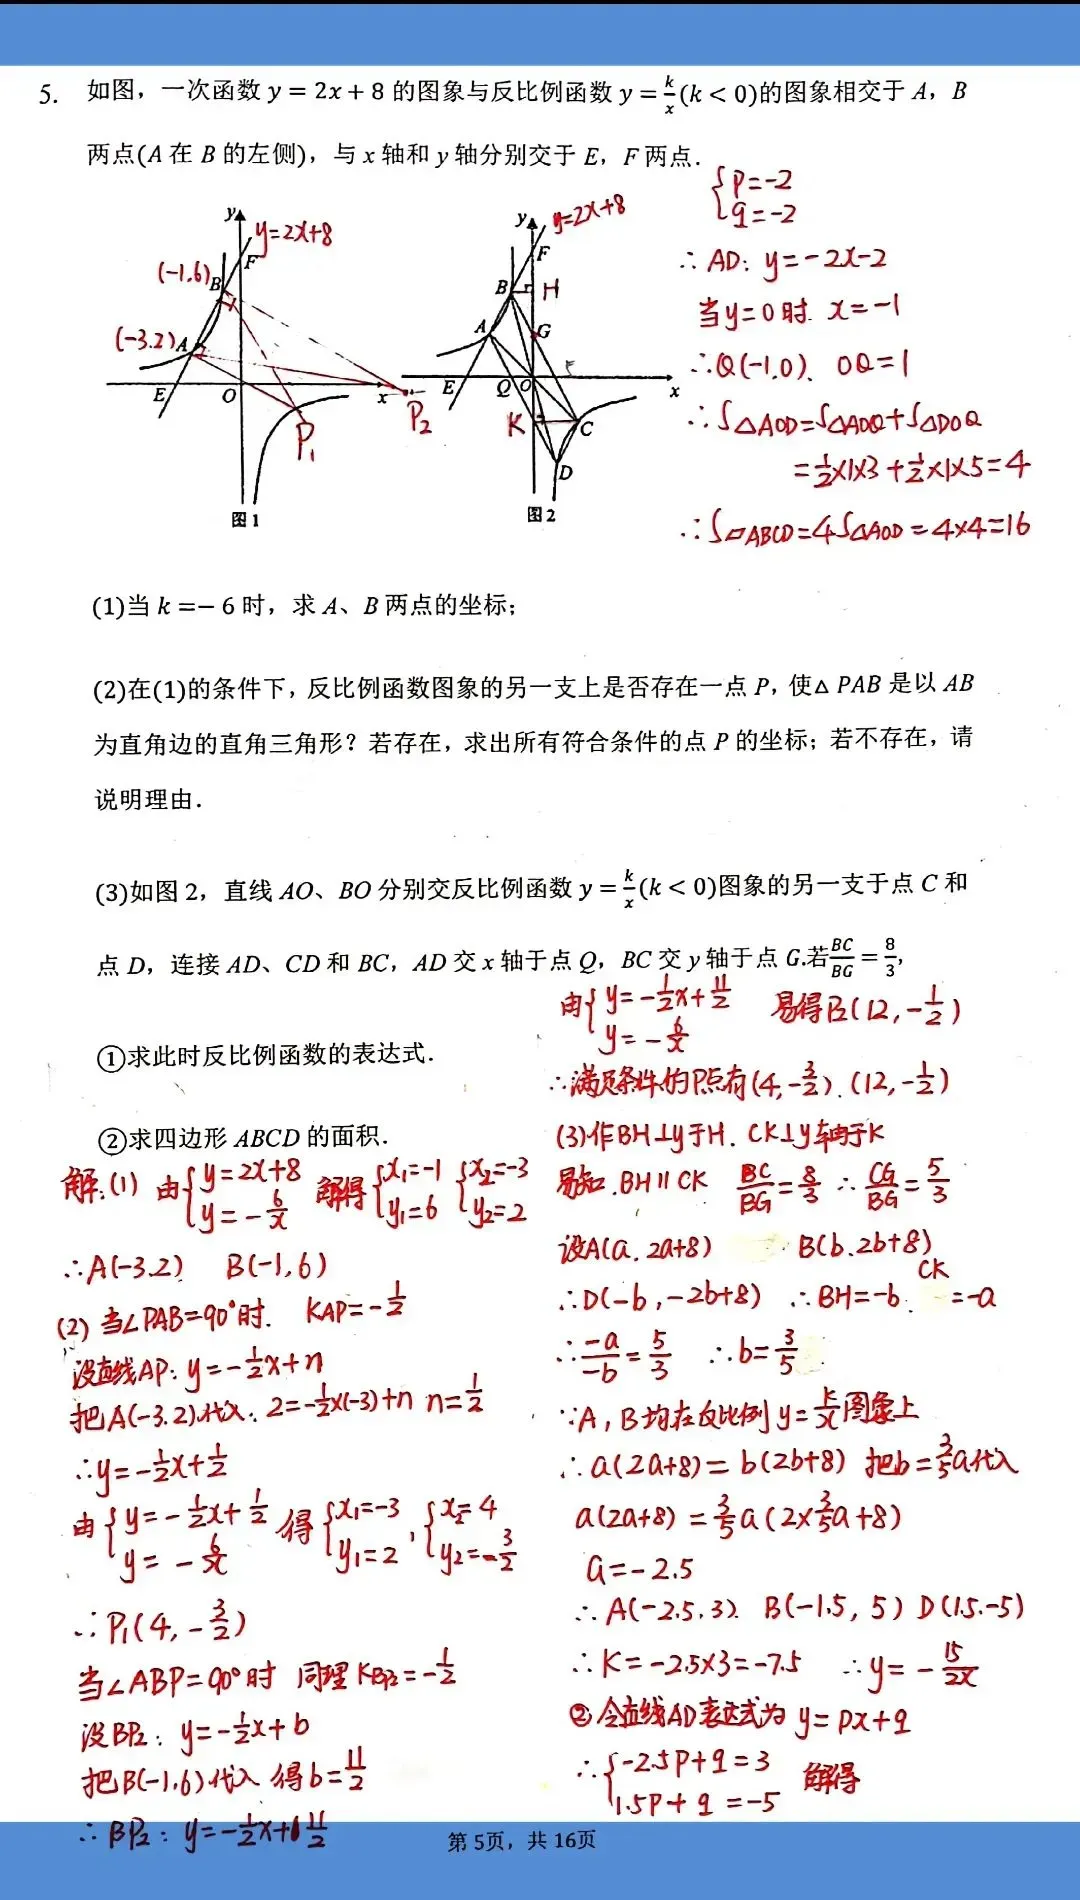 5. 如图，一次函数 y = 2x + 8 的图象与反比例函数 y = k/x (k < 0)的图象相交于 A，B
两点(A 在 B 的左侧)，与 x 轴和 y 轴分别交于 E，F 两点.
y
y=2x+8
F
(-1.6)
B
(-3.2)
A
E
O
x
P₁
P₂
图 1
y
y=2x+8
F
B
H
A
G
E
Q
O
x
K
C
D
图 2
{p=-2
q=-2
∴AD: y=-2x-2
当y=0时. x=-1
∴Q(-1.0). OQ=1
∴S△AOD=S△AOQ+S△DOQ
=½×1×3+½×1×5=4
∴S▱ABCD=4S△AOD=4×4=16
(1)当 k =− 6 时，求 A、B 两点的坐标；
(2)在(1)的条件下，反比例函数图象的另一支上是否存在一点 P，使△ PAB 是以 AB
为直角边的直角三角形？若存在，求出所有符合条件的点 P 的坐标；若不存在，请
说明理由.
(3)如图 2，直线 AO、BO 分别交反比例函数 y = k/x (k < 0)图象的另一支于点 C 和
点 D，连接 AD、CD 和 BC，AD 交 x 轴于点 Q，BC 交 y 轴于点 G.若BC/BG = 8/3,
①求此时反比例函数的表达式.
②求四边形 ABCD 的面积.
解:(1) 由{y=2x+8
y=-6/x 解得{x₁=-1
y₁=6 {x₂=-3
y₂=2
∴A(-3.2) B(-1,6)
(2) 当∠PAB=90°时. KAP=-½
设直线AP: y=-½x+n
把A(-3.2)代入: 2=-½×(-3)+n n=½
∴y=-½x+½
由{y=-½x+½
y=-6/x 得{x₁=-3
y₁=2 , {x₂=4
y₂=-3/2
∴P₁(4,-3/2)
当∠ABP=90°时 同理KBP₂=-½
设BP₂: y=-½x+b
把B(-1.6)代入 得b=11/2
∴BP₂: y=-½x+11/2
由{y=-½x+11/2
y=-6/x 易得P₂(12,-½)
∴满足条件的P点有(4,-3/2).(12,-½)
(3)作BH⊥y于H. CK⊥y轴于K
易知.BH∥CK BC/BG=8/3 ∴CG/BG=5/3
设A(a.2a+8) B(b.2b+8)
∴D(-b,-2b+8) ∴BH=-b. CK=-a
∴-a/-b=5/3 ∴b=3/5
∵A,B均在反比例y=k/x图象上
∴a(2a+8)=b(2b+8) 把b=3/5a代入
a(2a+8)=3/5a(2×3/5a+8)
a=-2.5
∴A(-2.5.3). B(-1.5,5) D(1.5.-5)
∴K=-2.5×3=-7.5 ∴y=-15/2x
②令直线AD表达式为y=px+q
∴{-2.5p+q=3
1.5p+q=-5 解得
第 5页，共 16页